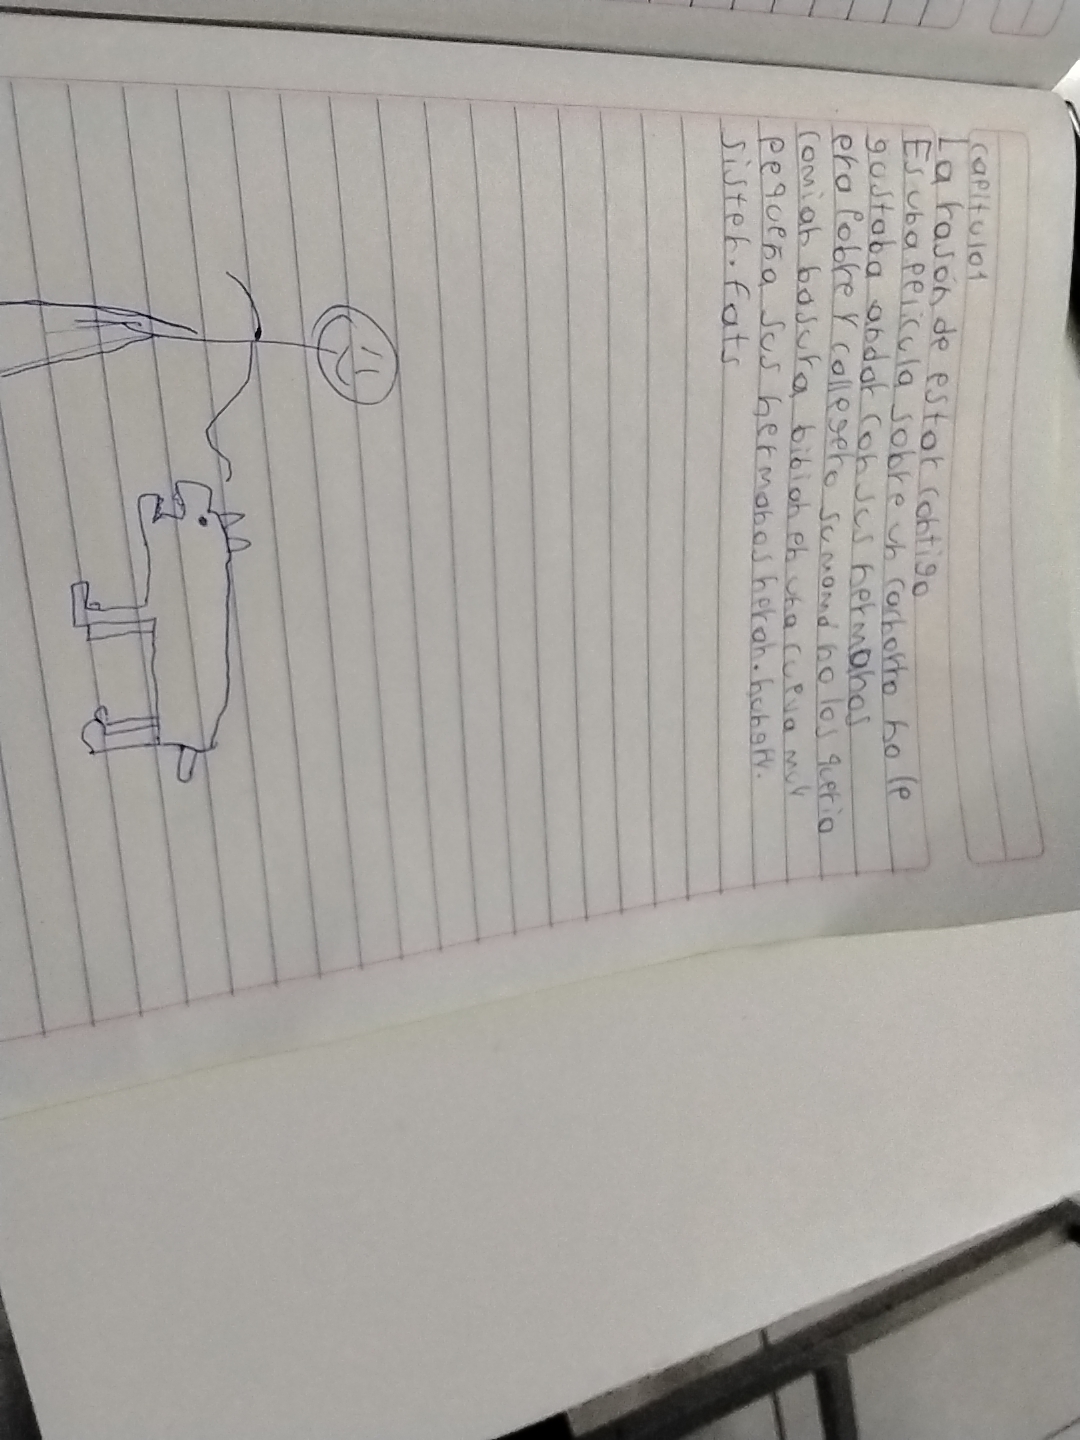 capitulo1
La rasón de estar contigo
Es una pelicula sobre un cachorro no le
gustaba andar con sus hermanos
era Pobre Y callegero su mamá no los queria
comian basura bibian en una cueva muY
pequeña sus hermanos heran. hungrY.
sister. fats